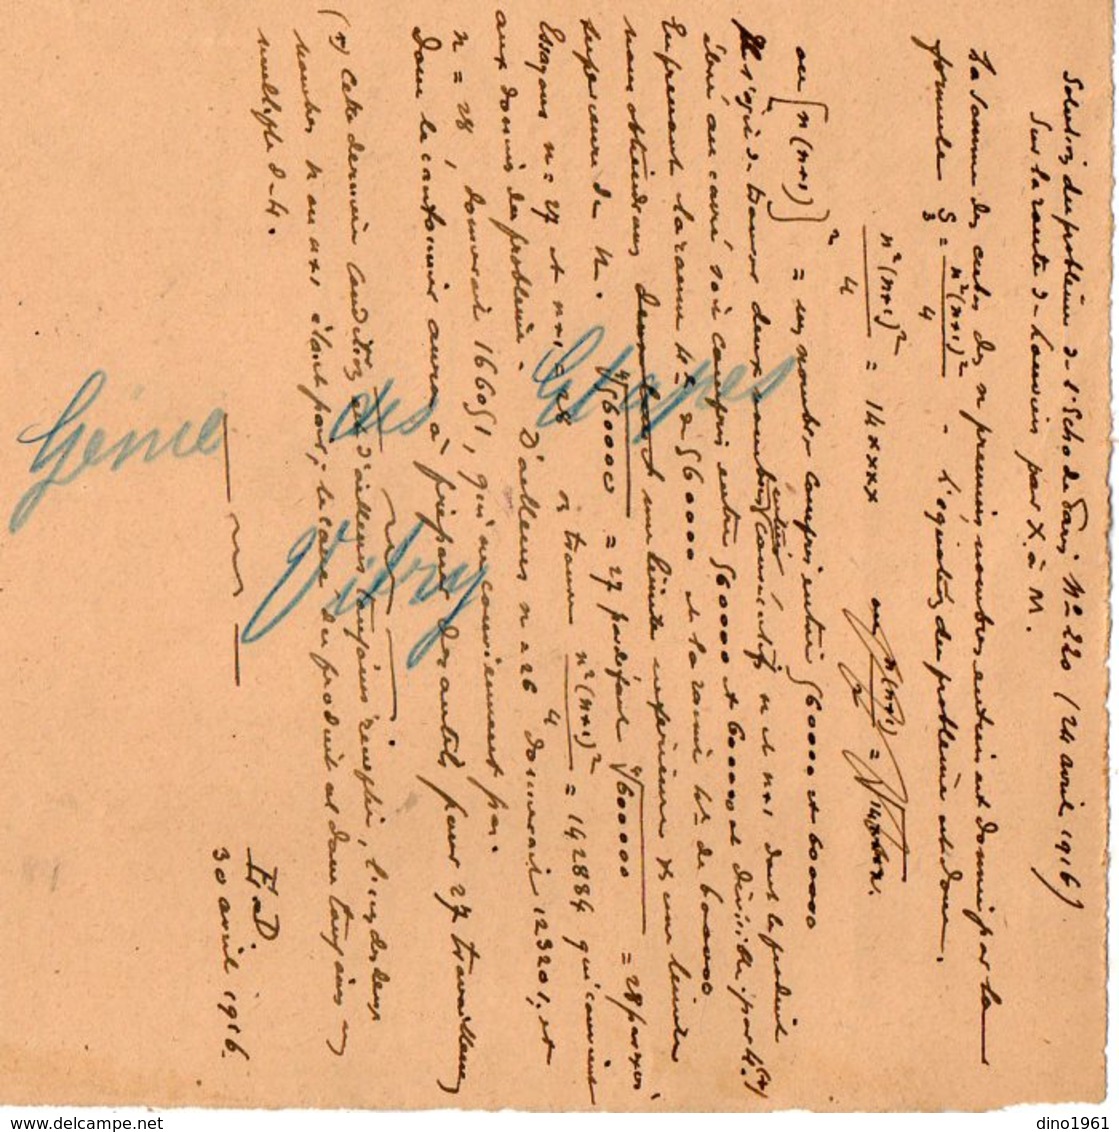 Solution du problème de l'Echo de Paris No 220 (24 avril 1916)
Sur la route de Louviers par X. à M.
La somme des cubes des n premiers nombres entiers est donnée par la
formule S₃ = n²(n+1)²/4 . L'équation du problème est donc.
n²(n+1)²/4 = 14xxxx ou n(n+1)/2 = √14xxxx.
ou [n(n+1)]² = un nombre compris entre 560000 et 600000
Il s'agit de trouver deux nombres entiers consécutifs n et n+1 dont le produit
élevé au carré soit compris entre 560000 et 600000 et divisible par 4. (1)
En prenant la racine 4me de 560000 et la racine 4me de 600000
nous obtiendrons une limite inférieure et une limite
supérieure de n. ⁴√560000 = 27 par défaut ⁴√600000 = 28 par excès
Essayons n = 27 et n+1 = 28 on trouve n²(n+1)²/4 = 142884 qui convient
aux données du problème. D'ailleurs n = 26 donnerait 123201, et
n = 28, donnerait 164836, qui ne conviennent pas.
Donc le cantonnier aura à préparer des outils pour 27 travailleurs
(1) Cette dernière condition est d'ailleurs toujours remplie, l'un des deux
nombres n ou n+1 étant pair, le carré du produit est donc toujours un
multiple de 4.
E.D
30 avril 1916.
Génie des Etapes
Vitry
dino1961